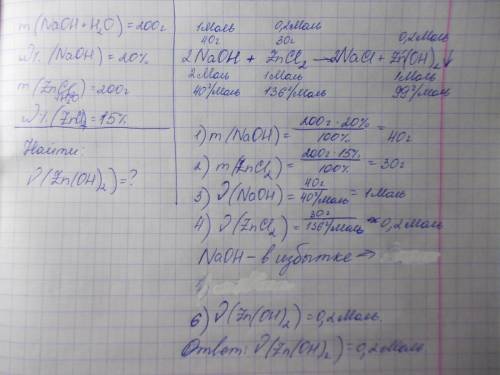 m(NaOH+H₂O)=200г
W%(NaOH)=20%
m(ZnCl₂)=200г
H₂O
W%(ZnCl₂)=15%
Найти:
ν(Zn(OH)₂)=?
1моль 0,2моль
40г 30г 0,2моль
2NaOH + ZnCl₂ → 2NaCl + Zn(OH)₂↓
2моль 1моль 1моль
40г/моль 136г/моль 99г/моль
1) m(NaOH) = 200г·20% / 100% = 40г
2) m(ZnCl₂) = 200г·15% / 100% = 30г
3) ν(NaOH) = 40г / 40г/моль = 1моль
4) ν(ZnCl₂) = 30г / 136г/моль ≈ 0,2моль
NaOH - в избытке ⇒
6) ν(Zn(OH)₂) = 0,2моль.
Ответ: ν(Zn(OH)₂) = 0,2моль.